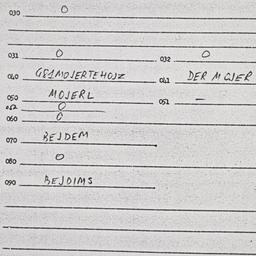 030 O
031 O 032 O
040 GS1MOJERTEHOJZ 041 DER MOJER
050 MOJERL 051 —
052 O
060 O
070 BEJDEM
080 O
090 BEJDIMS